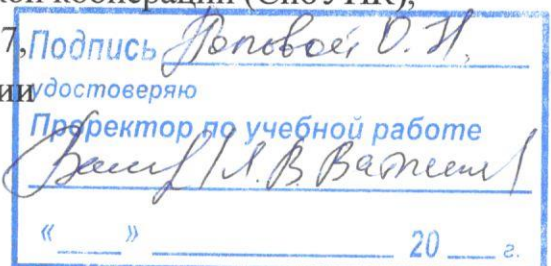 кой кооперации (СибУПК),
7,
ии
Подпись Поповой О. Н.
удостоверяю
Проректор по учебной работе
Л. В.
« » 20 г.